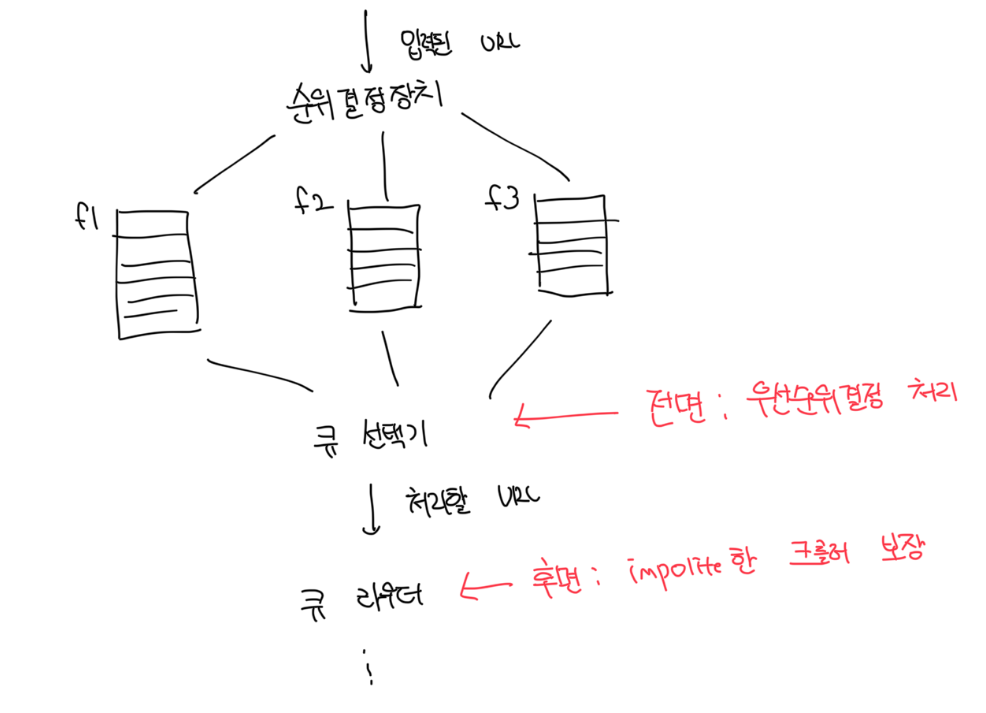 입력된 URL
순위결정장치
f1
f2
f3
큐 선택기
전면 : 우선순위결정 처리
처리할 URL
큐 라우터
후면 : impolite한 크롤러 보장